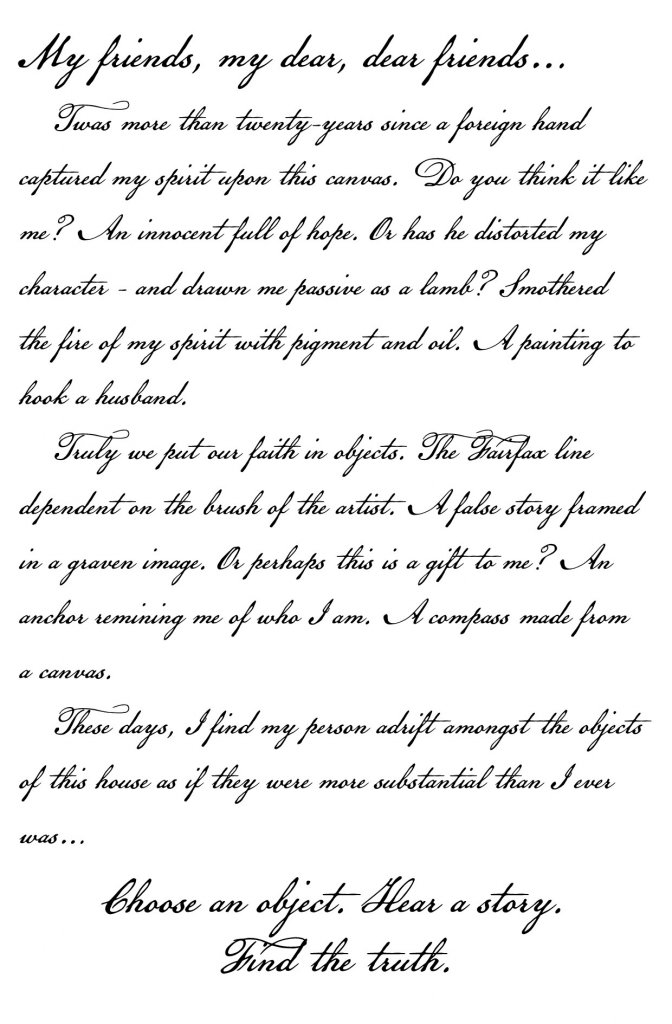 My friends, my dear, dear friends...
Twas more than twenty-years since a foreign hand
captured my spirit upon this canvas. Do you think it like
me? An innocent full of hope. Or has he distorted my
character - and drawn me passive as a lamb? Smothered
the fire of my spirit with pigment and oil. A painting to
hook a husband.
Truly we put our faith in objects. The Fairfax line
dependent on the brush of the artist. A false story framed
in a graven image. Or perhaps this is a gift to me? An
anchor remining me of who I am. A compass made from
a canvas.
These days, I find my person adrift amongst the objects
of this house as if they were more substantial than I ever
was...
Choose an object. Hear a story.
Find the truth.